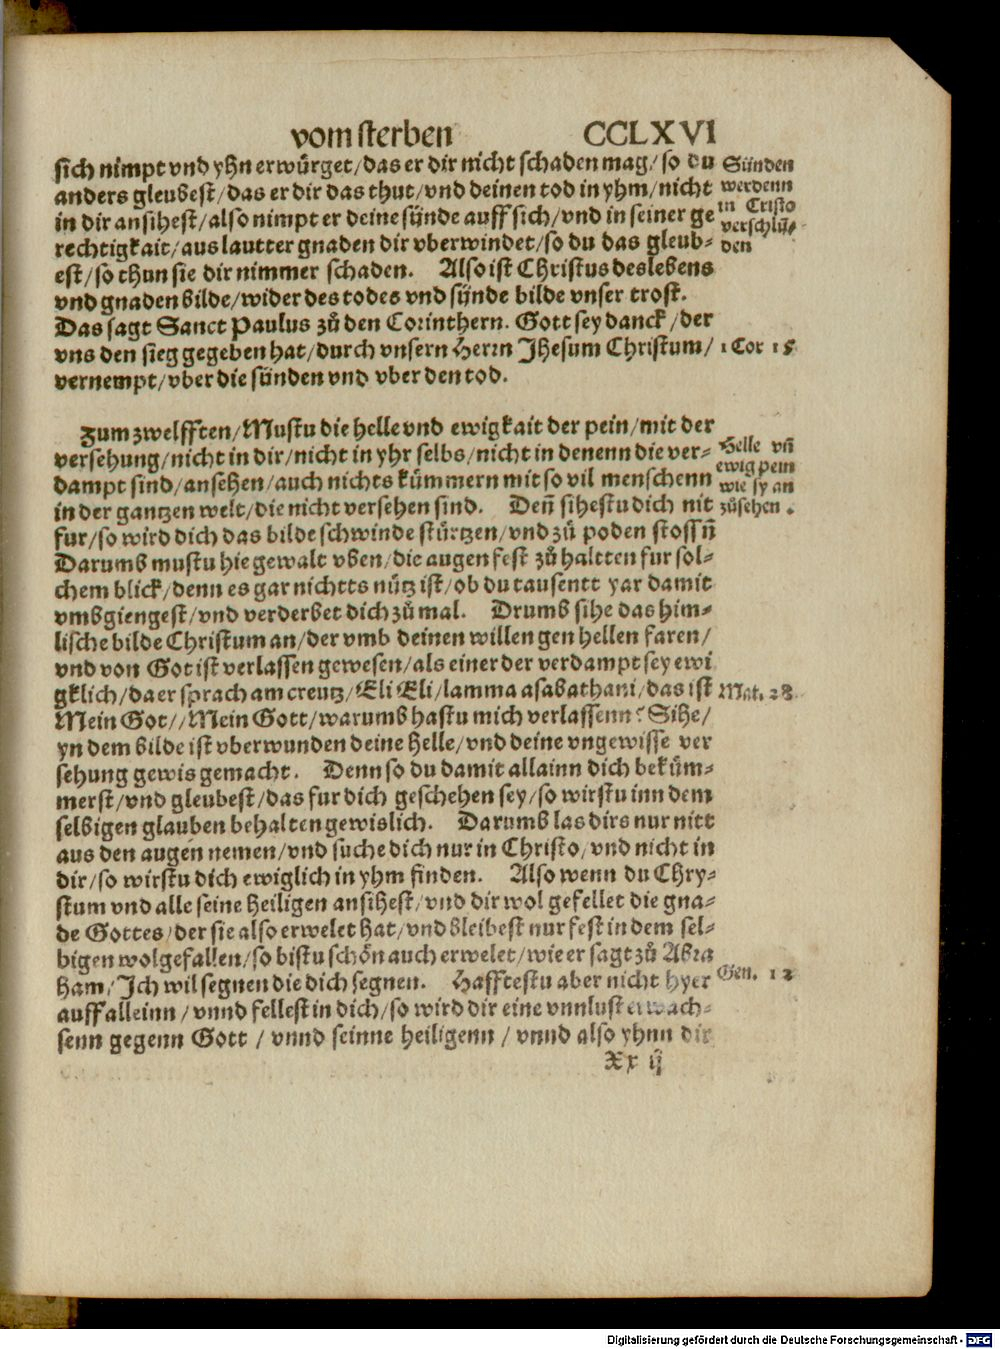 vom sterben CCLXVI
sich nimpt vnd yhn erwürget/das er dir nicht schaden mag/so du
anders gleubest/das er dir das thut/vnd deinen tod in yhm/nicht
in dir ansihest/also nimpt er deine sünde auff sich/vnd in seiner ge
rechtigkait/aus lautter gnaden dir vberwindet/so du das gleub⸗
est/so thun sie dir nimmer schaden. Also ist Christus des lebens
vnd gnaden bilde/wider des todes vnd sünde bilde vnser trost.
Das sagt Sanct Paulus zů den Corinthern. Gott sey danck/der
vns den sieg gegeben hat/durch vnsern Herrn Jhesum Christum/
vernempt/vber die sünden vnd vber den tod.
Sünden
werdenn
in Cristo
verschlü⸗
den
1 Cor 15
Zum zwelfften/Mustu die helle vnd ewigkait der pein/mit der
versehung/nicht in dir/nicht in yhr selbs/nicht in denenn die ver⸗
dampt sind/ansehen/auch nichts kümmern mit so vil menschenn
in der gantzen welt/die nicht versehen sind. Deñ sihestu dich nit
fur/so wird dich das bilde schwinde stürtzen/vnd zů poden stossñ
Darumb mustu hie gewalt vben/die augen fest zů haltten fur sol⸗
chem blick/denn es gar nichtts nütz ist/ob du tausentt yar damit
vmbgiengest/vnd verderbet dich zů mal. Drumb sihe das him⸗
lische bilde Christum an/der vmb deinen willen gen hellen faren/
vnd von Got ist verlassen gewesen/als einer der verdampt sey ewi
gklich/da er sprach am creutz/Eli Eli/lamma asabathani/das ist
Mein Got//Mein Gott/warumb hastu mich verlassenn? Sihe/
yn dem bilde ist vberwunden deine helle/vnd deine vngewisse ver
sehung gewis gemacht. Denn so du damit allainn dich beküm⸗
merst/vnd gleubest/das fur dich geschehen sey/so wirstu inn dem
selbigen glauben behalten gewislich. Darumb las dirs nur nitt
aus den augen nemen/vnd suche dich nur in Christo/vnd nicht in
dir/so wirstu dich ewiglich in yhm finden. Also wenn du Chry⸗
stum vnd alle seine heiligen ansihest/vnd dir wol gefellet die gna⸗
de Gottes/der sie also erwelet hat/vnd bleibest nur fest in dem sel⸗
bigen wolgefallen/so bistu schön auch erwelet/wie er sagt zů Abra
ham/Ich wil segnen die dich segnen. Hafftestu aber nicht hyer
auff alleinn/vnnd fellest in dich/so wird dir eine vnnlust erwach⸗
senn gegenn Gott/vnnd seinne heiligenn/vnnd also yhnn dir
Helle vñ
ewig pein
wie sy an
zůsehen.
Mat. 28
Gen. 12
Xx ij
Digitalisierung gefördert durch die Deutsche Forschungsgemeinschaft - DFG